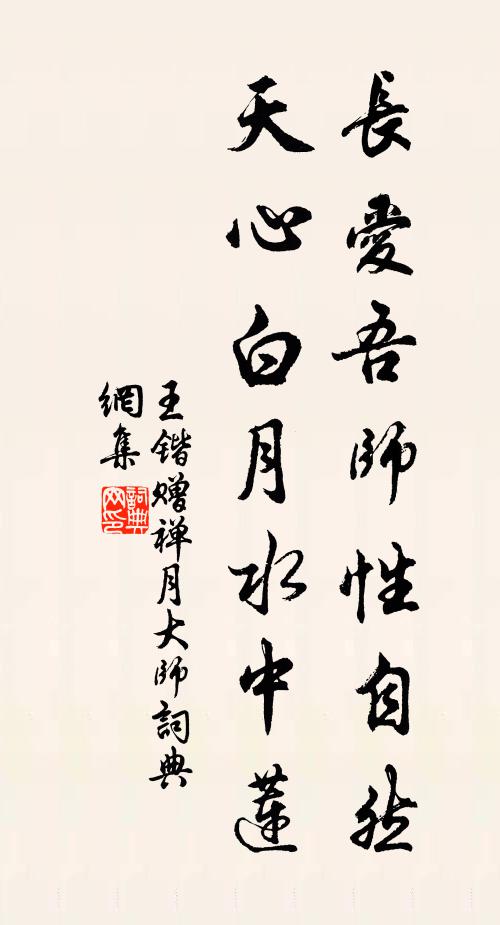 長愛吾師性自然
天心白月水中蓮
王鍇贈禅月大师詞典
網集
詞典网印